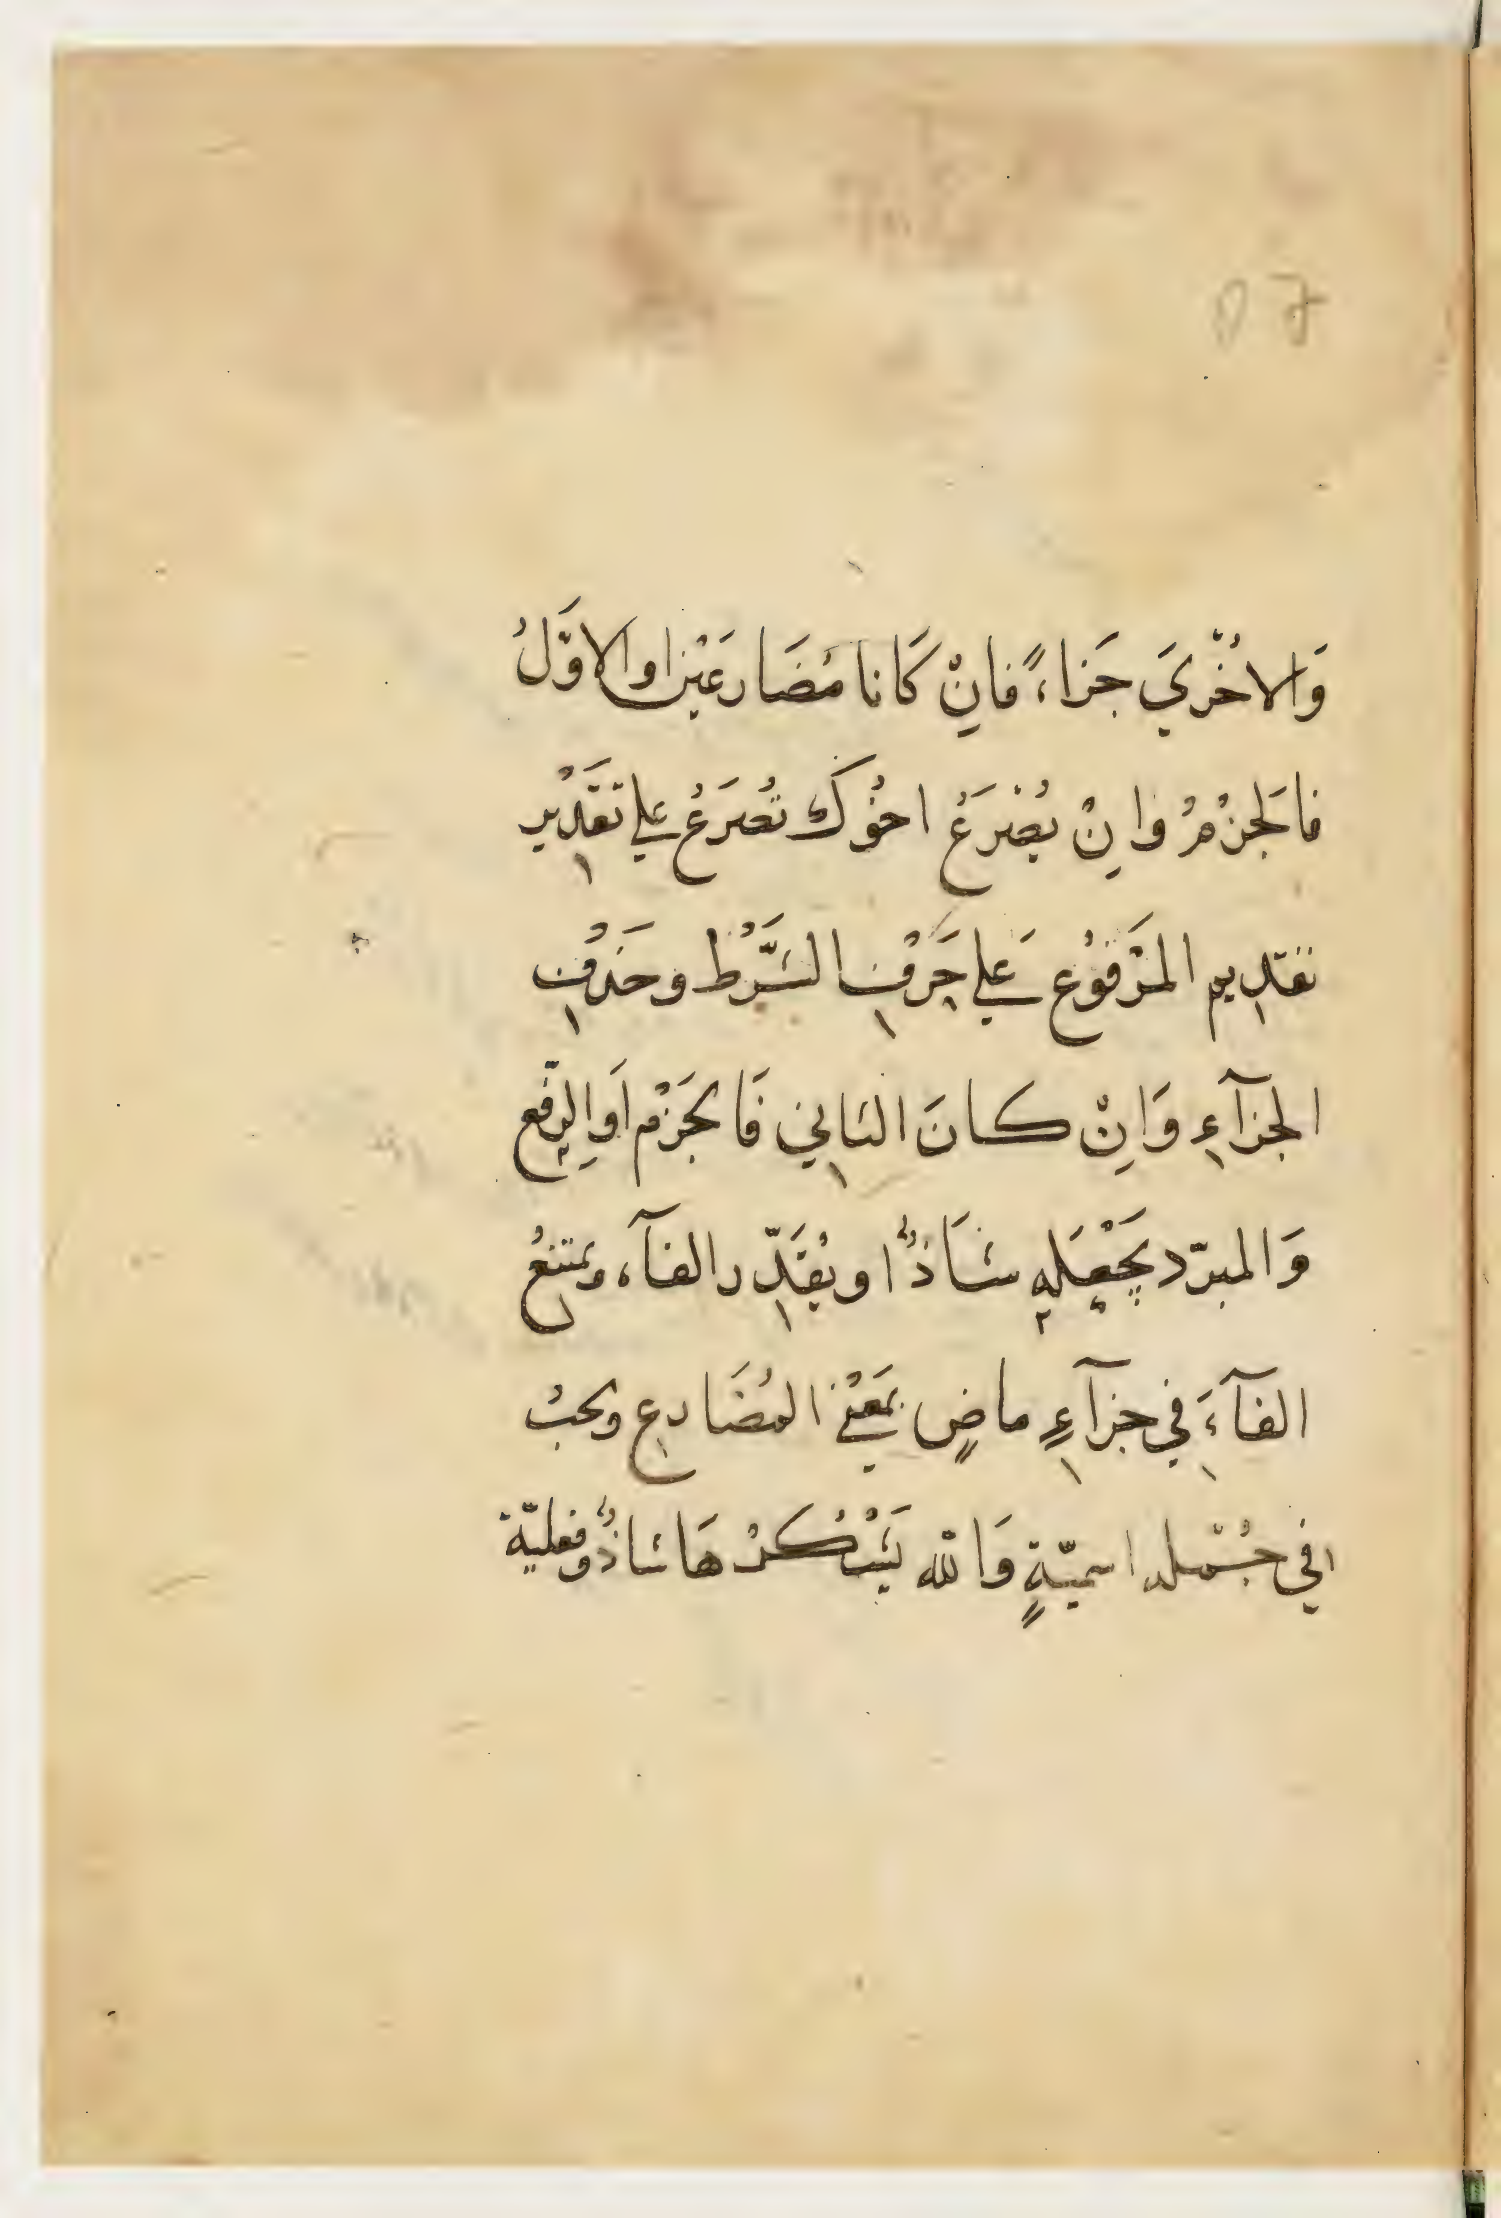 وَالاُخْريَ جَزاءً فانِْ كَانا مُضَارعَيْن او الاوَّلُ
فالجزْمُ وانِْ يُصْرَعُ اخُوكَ تُصْرَعُ علي تقَدْيِر
تقدِيم المَرْفوُعِ عَلي حَرْفِ الشَّرْط وحَذْفِ
الجزآءِ وَانِْ كانَ الثاني فَالجَزْم اَوِالرّفع
وَالمبرّد يَجْعَلهِ شَاذًّا ويُقَدِّر الفآء ويمتنعُ
الفآءَ في جزآءٍ ماضٍ بمَعْنيَ المُضَارِع ويجبُ
في جُمْله اسميّةٍ وَالله يَشْكُرْهَا شاذٌّ وفعليّة